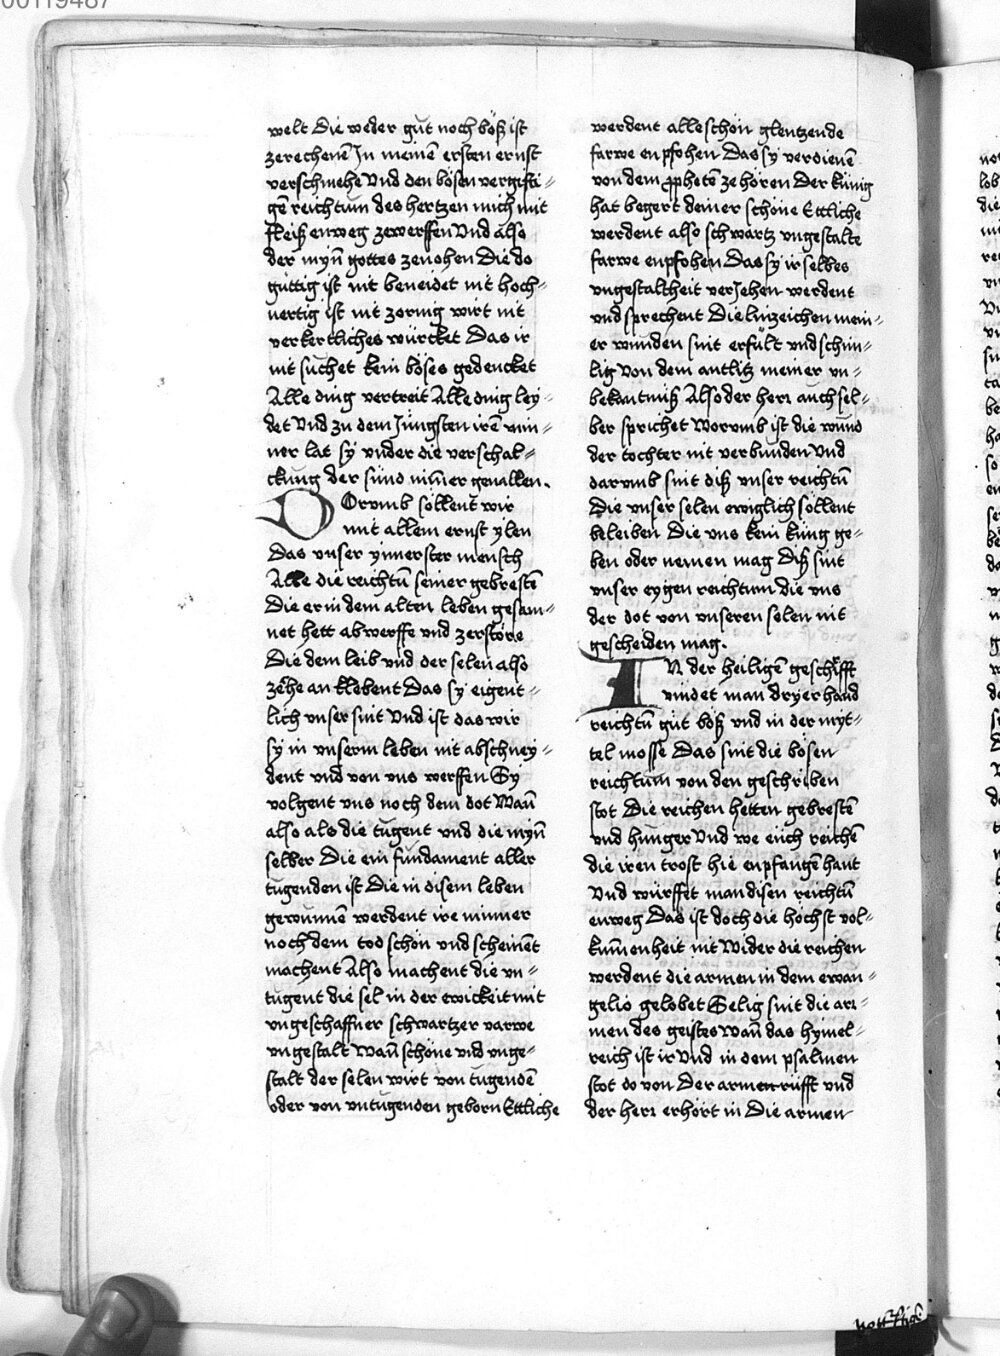 00119487
welt Die weder gůt noch bôß ist
zerechenē In meinē ersten ernst
verschmehe Vnd den bôsen vergifti-
gē reichtum des hertzen mich mit
fleiß enweg zewerffen Vnd also
der mÿn gottes zenohen Die do
gůttig ist nit beneidet nit hoch-
uertig ist nit zornig wirt nit
verkertliches würcket Das ir
nit sůchet kein bôses gedencket
Alle ding vertreit Alle ding ley-
det Vnd zu dem Jüngsten irē min-
ner lat sy vnder die verschal-
ckung der sünd nim̄er geuallen.
DOrvmb sôllent wir
mit allem ernst ylen
Das vnser ynnerster mensch
Alle die reichtū seiner gebrestē
Die er in dem alten leben gesam-
net hett abwerffe vnd zerstôre
Die dem leib vnd der selen also
zêhe an klebent Das sy eigent-
lich vnser sint Vnd ist das wir
sy in vnserm leben nit abschney-
dent vnd von vns werffen Sy
volgent vns noch dem dot Wañ
also als die tůgent vnd die mÿn
selber Die ein fundament aller
tůgenden ist Die in disem leben
gewunnē werdent ire minner
noch dem tod schôn vnd scheinēt
machent Also machent die vn-
tůgent die sel in der ewickeit mit
vngeschaffner schwartzer varwe
vngestalt Wañ schône vnd vnge-
stalt der selen wirt von tůgendē
oder von vntůgenden geborn Ettliche
werdent alle schôn glentzende
farwe enpfohen Das sy verdienē
von dem ꝓphetē ze hôren Der künig
hat begert deiner schône Ettliche
werdent also schwartz vngestalte
farwe enpfohen Das sy ir selbes
vngestaltheit veriehen werdent
vnd sprechent Die linzeichen mein-
er wunden sint erfült vnd schin-
lig von dem antlitz meiner vn-
bekantniß Also der herr auch sel-
ber sprichet Worvmb ist die wund
der tochter nit verbunden Vnd
darvmb sint diß vnser reichtū
Die vnser selen ewiglich sôllent
beleiben Die vns kein künig ge-
ben oder nemen mag Diß sint
vnser eygen reichtum die vns
der dot von vnseren selen nit
gescheiden mag.
IN der heiligē geschrifft
vindet man dryerhand
reichtū gůt bôß vnd in der myt-
tel mosse Das sint die bôsen
reichtum von den geschriben
stot Die reichen hetten gebrestē
vnd hunger Vnd we euch reichē
die iren trost hie enpfangē hant
Vnd würffet man disen reichtū
enweg Das ist doch die hôchst vol-
kum̄enheit nit Wider die reichen
werdent die armen in dem ewan-
gelio gelobet Selig sint die ar-
men des geistes Wañ das hymel-
reich ist ir Vnd in dem psalmen
stot do von Der armen rüfft vnd
der herr erhôrt in Die armen